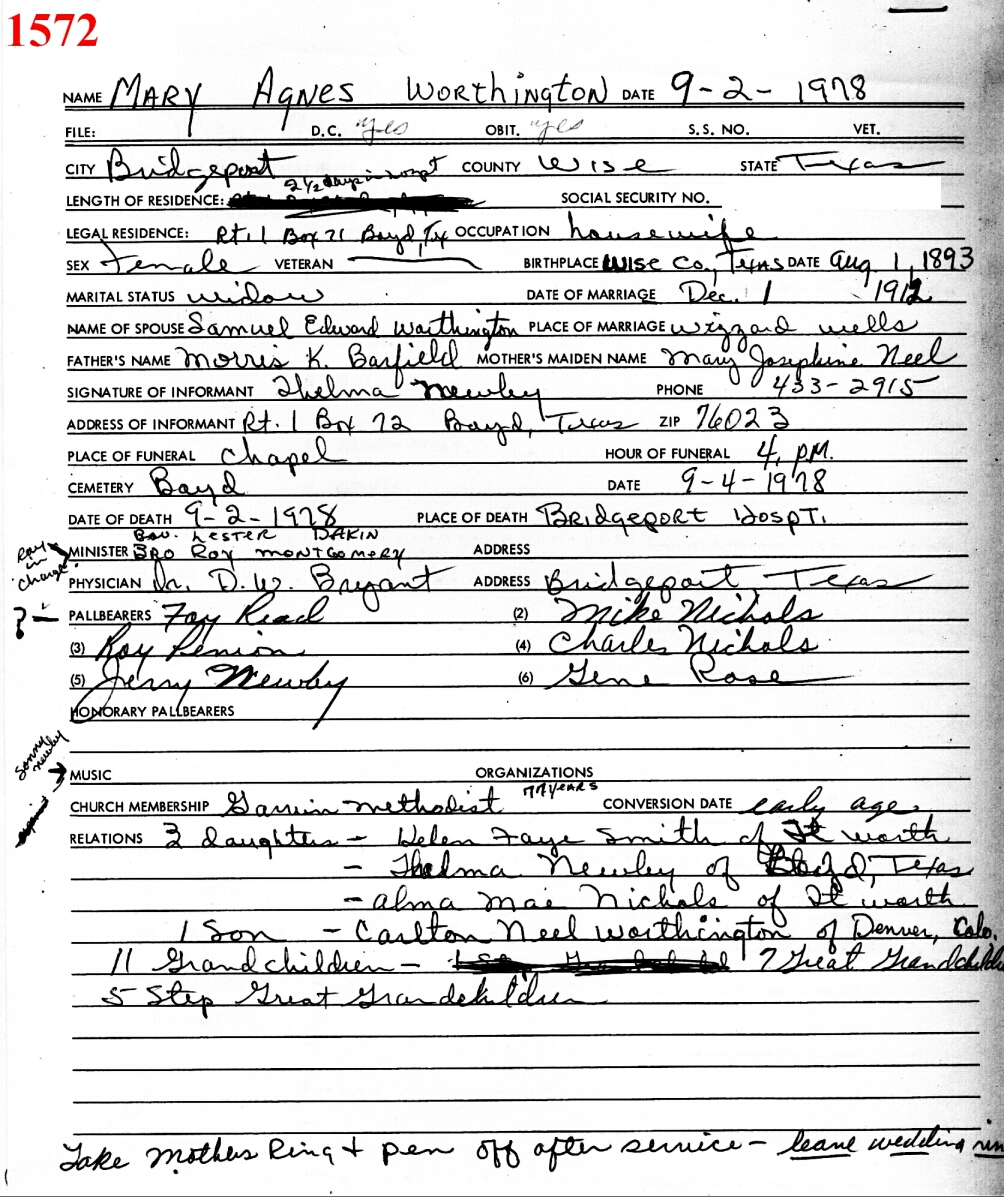 1572
NAME MARY AGNES WORTHINGTON DATE 9-2-1978
FILE: D.C. yes OBIT. yes S.S. NO. VET.
CITY Bridgeport COUNTY Wise STATE Texas
2 1/2 days in hospt
LENGTH OF RESIDENCE: SOCIAL SECURITY NO.
LEGAL RESIDENCE: Rt. 1 Box 71 Boyd, Tx OCCUPATION housewife
SEX Female VETERAN BIRTHPLACE Wise Co., Texas DATE Aug 1, 1893
MARITAL STATUS widow DATE OF MARRIAGE Dec. 1 1912
NAME OF SPOUSE Samuel Edward Worthington PLACE OF MARRIAGE Wizzard Wells
FATHER'S NAME Morris K. Barfield MOTHER'S MAIDEN NAME Mary Josephine Neel
SIGNATURE OF INFORMANT Thelma Newby PHONE 433-2915
ADDRESS OF INFORMANT Rt. 1 Box 72 Boyd, Texas ZIP 76023
PLACE OF FUNERAL Chapel HOUR OF FUNERAL 4, P.M.
CEMETERY Boyd DATE 9-4-1978
DATE OF DEATH 9-2-1978 PLACE OF DEATH Bridgeport Hospt.
LESTER DAKIN
Roy in charge MINISTER BRO ROY MONTGOMERY ADDRESS
PHYSICIAN Dr. D.W. Bryant ADDRESS Bridgeport, Texas
? - PALLBEARERS Foy Read (2) Mike Nichols
(3) Roy (4) Charles Nichols
(5) Jerry Newby (6) Gene Rose
HONORARY PALLBEARERS
Sonny Newby
MUSIC ORGANIZATIONS
77 YEARS
CHURCH MEMBERSHIP Garvin Methodist CONVERSION DATE early age.
RELATIONS 3 daughters - Helen Faye Smith of Ft worth
- Thelma Newby of Boyd, Texas
- Alma Mae Nichols of Ft worth
1 Son - Carlton Neel Worthington of Denver, Colo.
11 Grandchildren - 7 Great Grandchildre
5 Step Great Grandchildren
Take Mothers Ring + pen off after service - leave wedding rin